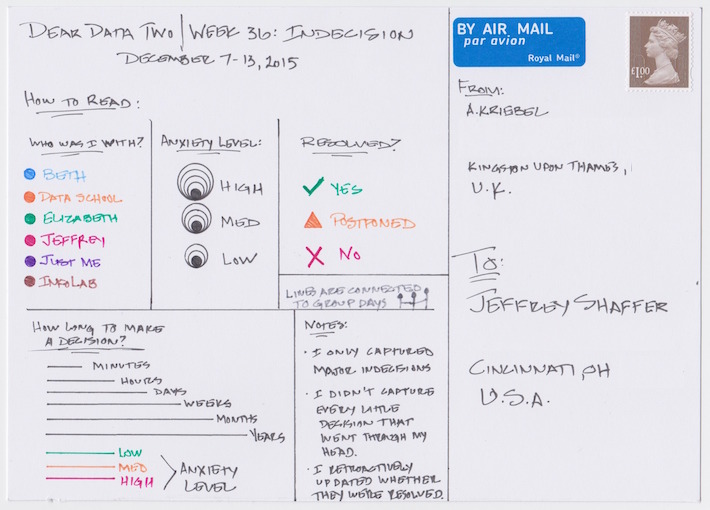 DEAR DATA TWO | WEEK 36: INDECISION
DECEMBER 7-13, 2015
HOW TO READ:
WHO WAS I WITH?
BETH
DATA SCHOOL
ELIZABETH
JEFFREY
JUST ME
INFOLAB
ANXIETY LEVEL:
HIGH
MED
LOW
RESOLVED?
YES
POSTPONED
NO
LINES ARE CONNECTED
TO GROUP DAYS
HOW LONG TO MAKE
A DECISION?
MINUTES
HOURS
DAYS
WEEKS
MONTHS
YEARS
LOW
MED
HIGH
ANXIETY
LEVEL
NOTES:
· I ONLY CAPTURED
MAJOR INDECISIONS
· I DIDN'T CAPTURE
EVERY LITTLE
DECISION THAT
WENT THROUGH MY
HEAD.
· I RETROACTIVELY
UPDATED WHETHER
THEY WERE RESOLVED.
BY AIR MAIL
par avion
Royal Mail®
£1.00
FROM:
A. KRIEBEL
KINGSTON UPON THAMES,
U.K.
TO:
JEFFREY SHAFFER
CINCINNATI, OH
U.S.A.